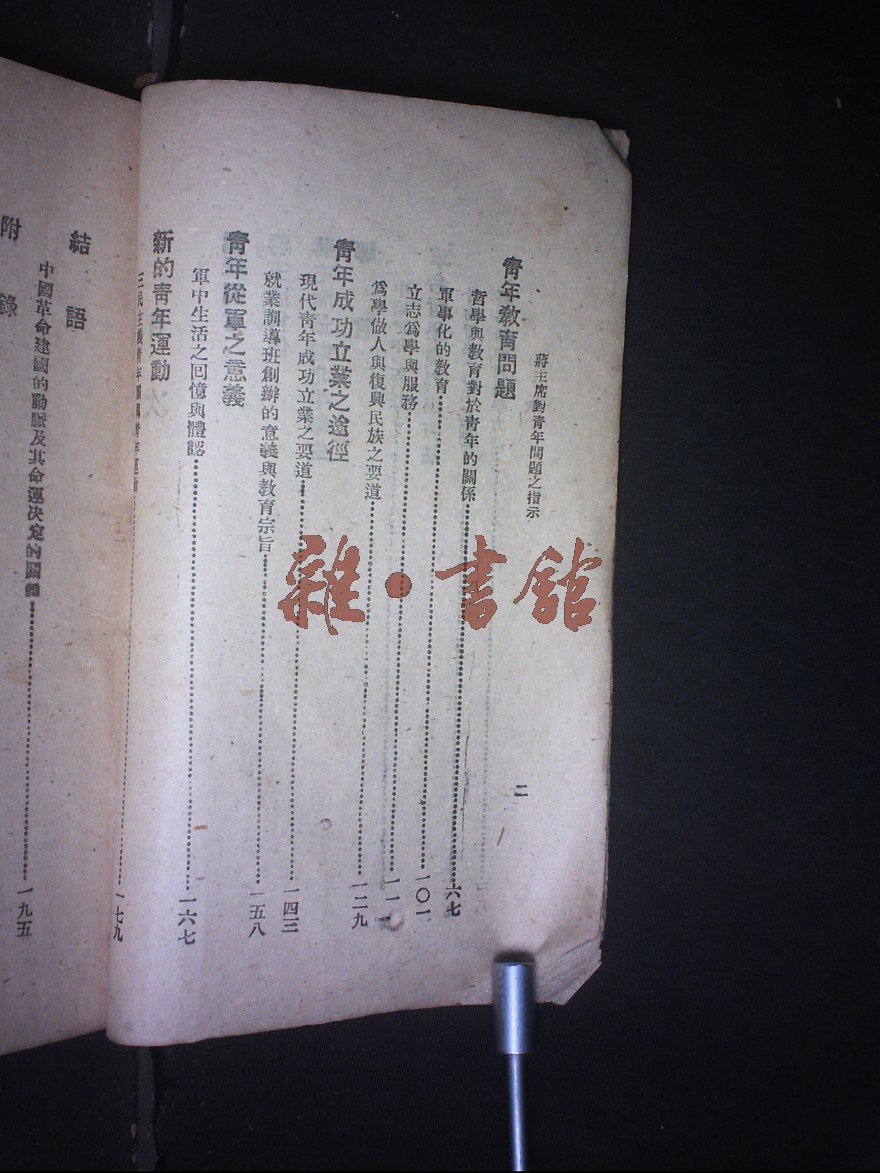 蔣主席對青年問題之指示
二
青年教育問題
哲學與教育對於青年的關係六七
軍事化的教育一〇一
立志爲學與服務一一一
青年成功立業之途徑
爲學做人與復興民族之要道一二九
現代青年成功立業之要道一四三
就業訓導班創辦的意義與教育宗旨一五八
青年從軍之意義
軍中生活之回憶與體認一六七
新的青年運動
三民主義青年團與青年運動一七九
結語
中國革命建國的動脈及其命運決定的關頭一九五
附錄
雜·書館